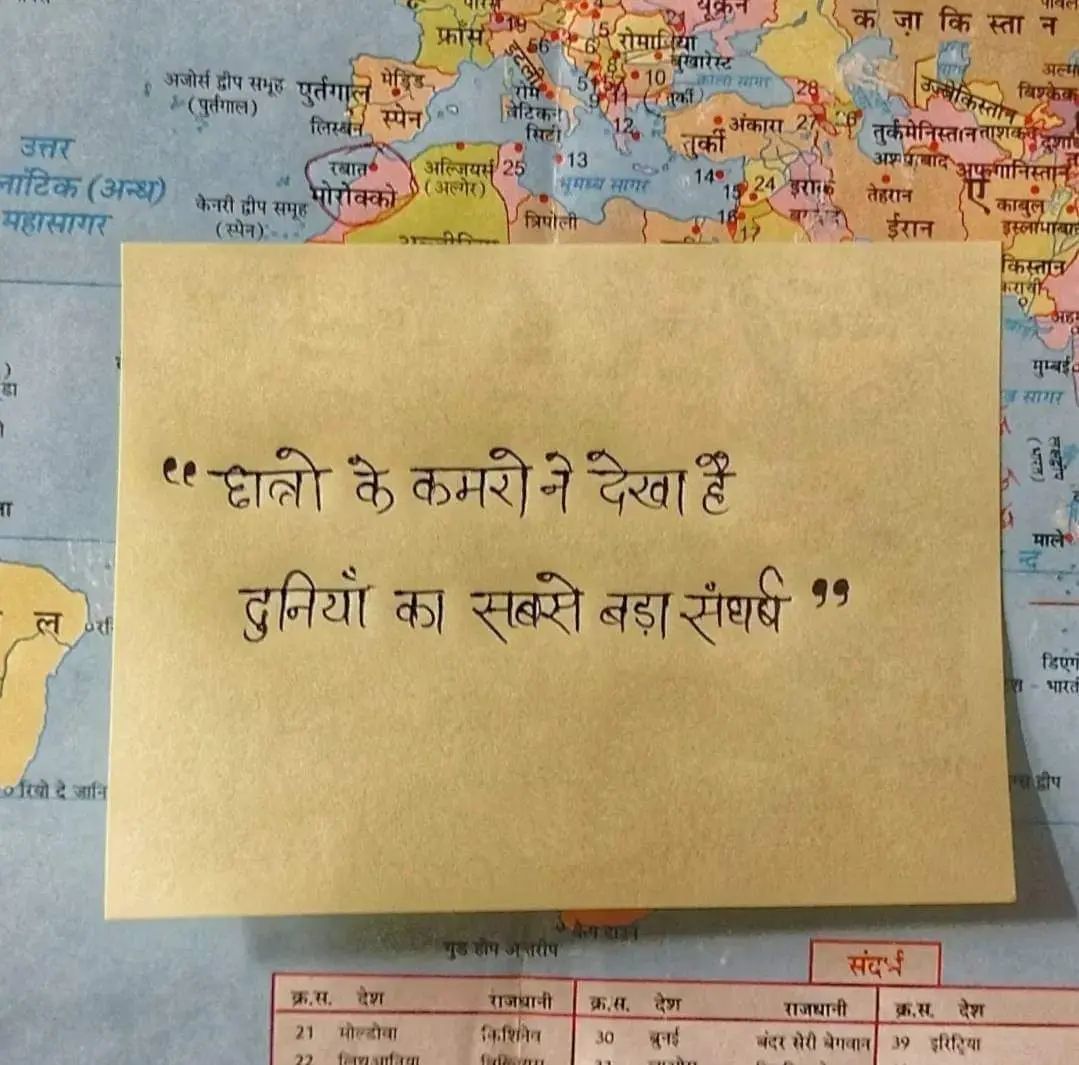 पेरिस
19
यूक्रेन
क ज़ा कि स्ता न
फ्राँस
56
5
6
रोमानिया
बुखारेस्ट
इटली
रोम
10
काला सागर
28
उज्बेकिस्तान
बिश्केक
अजोर्स द्वीप समूह
(पुर्तगाल)
पुर्तगाल
मेड्रिड
स्पेन
लिस्बन
वेटिकन
सिटी
12
तुर्की
अंकारा
27
तुर्कमेनिस्तान
उत्तर
(अन्ध)
महासागर
रबात
मोरोक्को
अल्जियर्स
(अल्गेर)
25
13
भूमध्य सागर
14
15
24
इराक
बगदाद
तेहरान
ईरान
अफगानिस्तान
ए
काबुल
केनरी द्वीप समूह
(स्पेन)
त्रिपोली
16
17
मुम्बई
माले
“छात्रो के कमरो ने देखा है
दुनियाँ का सबसे बड़ा संघर्ष”
ल
रियो दे जानि
गुड होप अन्तरीप
केप टाउन
संदर्भ
क्र.स. देश राजधानी क्र.स. देश राजधानी क्र.स. देश
21 मोल्डोवा किशिनेव 30 ब्रुनई बंदर सेरी बेगवान 39 इरिट्रिया
22